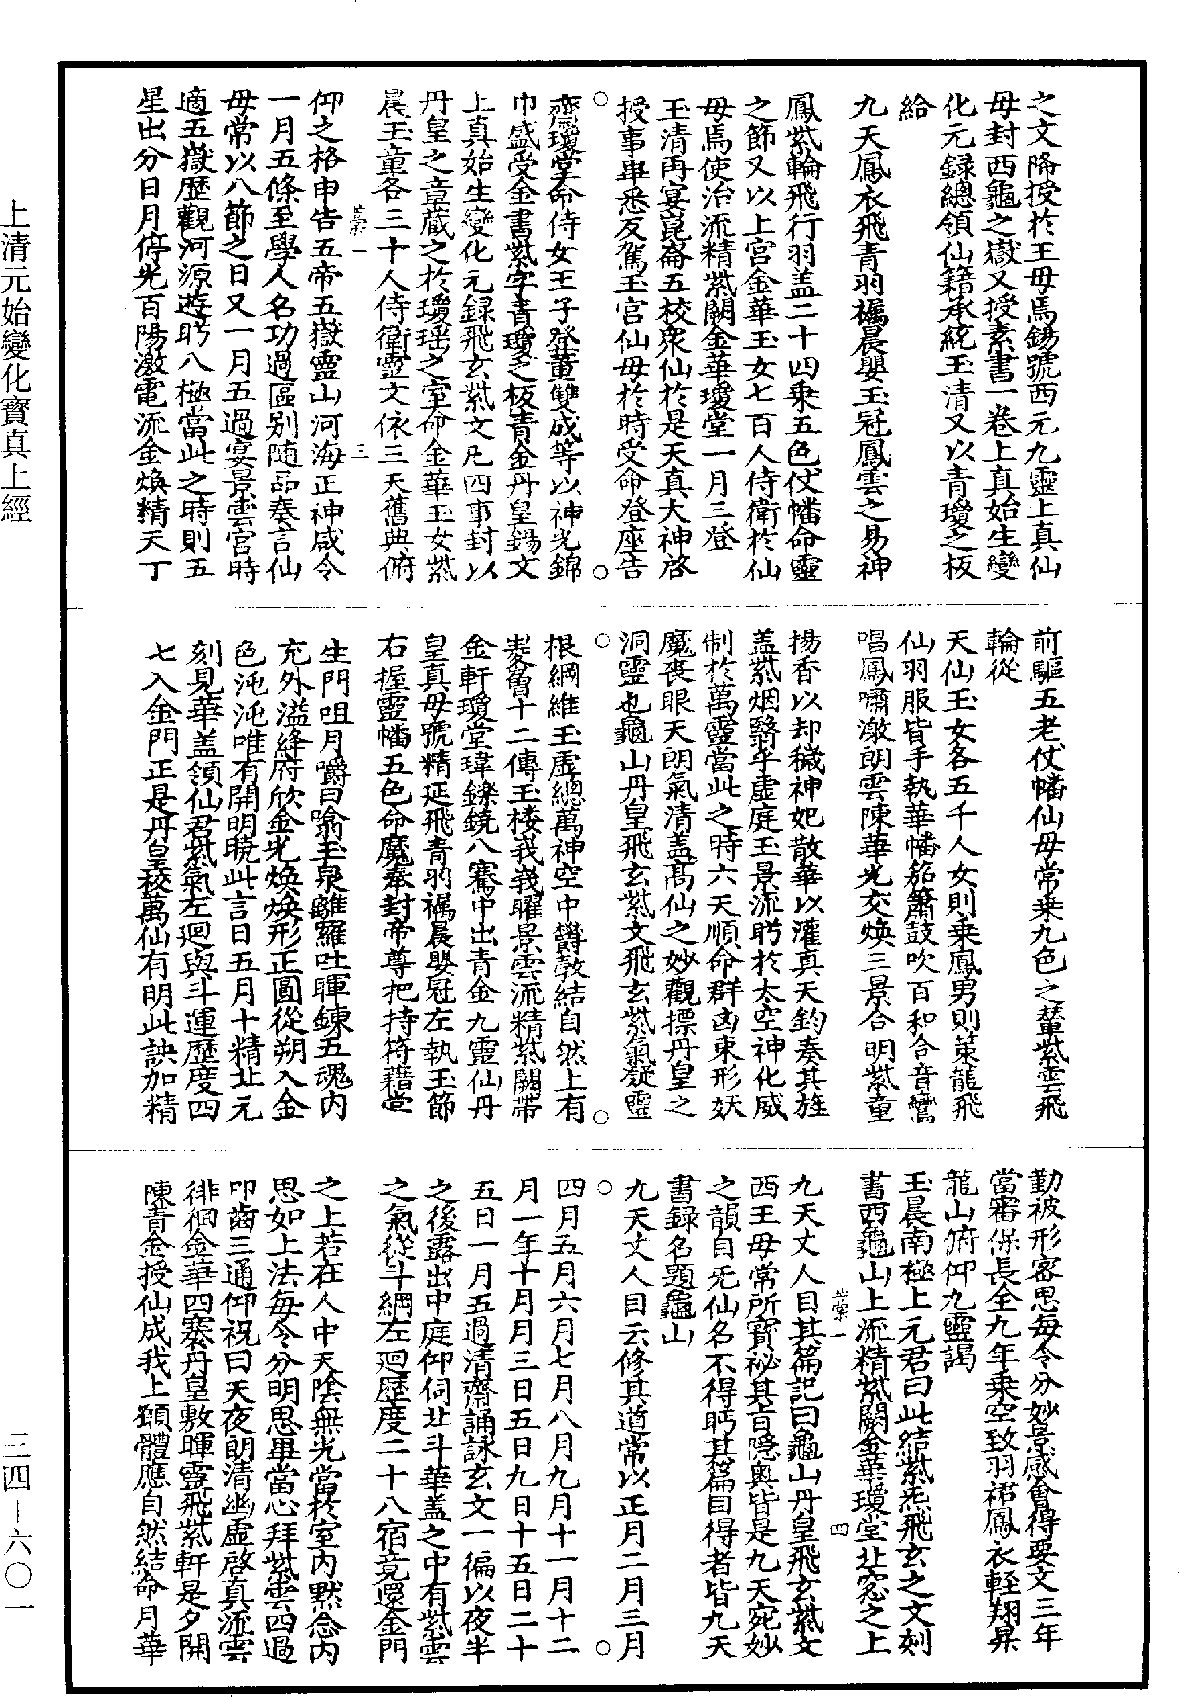 之文降授於王母焉錫號西元九靈上真仙
母封西龜之嶽又授素書一卷上真始生變
化元録總領仙籍承統玉清又以青瓊之板
給
九天鳳衣飛青羽襡晨嬰玉冠鳳雲之舄神
鳳紫輪飛行羽盖二十四乘五色仗幡命靈
之節又以上宫金華玉女七百人侍衛於仙
母焉使治流精紫闕金華瓊堂一月三登
玉清再宴崑崙五校衆仙於是天真大神啓
授事畢悉反駕玉宫仙母於時受命登座告
齋瓊堂命侍女王子登董雙成等以神光錦
巾盛受金書紫字青瓊之板青金丹皇錫文
上真始生變化元録飛玄紫文凡四事封以
丹皇之章藏之於瓊瑶之室命金華玉女紫
晨玉童各三十人侍衛靈文依三天舊典俯
棠一　三
仰之格申告五帝五嶽靈山河海正神咸令
一月五條至學人名功過區别隨品奏言仙
母常以八節之日又一月五過宴景雲宫時
適五嶽歷觀河源遊眄八極當此之時則五
星出分日月停光百陽激電流金焕精天丁
前驅五老仗幡仙母常乘九色之輦紫雲飛
輪從
天仙玉女各五千人女則乘鳳男則策龍飛
仙羽服皆手執華幡笳簫鼓吹百和合音鸞
唱鳳嘯激朗雲陳華光交焕三景合明紫童
揚香以却穢神妃散華以灌真天鈞奏其旌
盖紫烟翳乎虚庭玉景流眄於太空神化威
制於萬靈當此之時六天順命群凶束形妖
魔喪眼天朗氣清盖高仙之妙觀摽丹皇之
洞靈也龜山丹皇飛玄紫文飛玄紫氣凝靈
根綱維玉虚總萬神空中欝敷結自然上有
层曾十二傳玉楼我我曜景雲流精紫闕帶
金軒瓊堂瑋鑠鏡八騫中出青金九靈仙丹
皇真母號精延飛青羽襡晨嬰冠左執玉節
右握靈幡五色命魔奉封帝尊把持符籍當
生門咀月嚼日喻玉泉離羅吐暉鍊五魂内
充外溢絳府欣金光焕焕形正圓從朔入金
色沌沌唯有開明曉此言日五月十精北元
刻見華盖領仙君紫氣左迴與斗運歷度四
七入金門正是丹皇校萬仙有明此訣加精
勤被形密思每令分妙景感會得要文三年
當審保長全九年乘空致羽裙鳳衣輕翔昇
龍山俯仰九靈謁
玉晨南極上元君曰此結紫炁飛玄之文刻
書西龜山上流精紫闕金華瓊堂北窓之上
棠一　四
九天丈人目其篇記曰龜山丹皇飛玄紫文
西王母常所寶祕其音隱奥皆是九天宛妙
之韻自无仙名不得眄其篇目得者皆九天
書録名題龜山
九天丈人目云修其道常以正月二月三月
四月五月六月七月八月九月十一月十二
月一年十月月三日五日九日十五日二十
五日一月五過清齋誦詠玄文一徧以夜半
之後露出中庭仰伺北斗華盖之中有紫雲
之氣從斗綱左迴歷度二十八宿竟還金門
之上若在人中天陰無光當於室内黙念内
思如上法每令分明思畢當心拜紫雲四過
叩齒三通仰祝曰天夜朗清幽虚啓真流雲
徘徊金華四寨丹皇敷暉靈飛紫軒是夕開
陳青金授仙成我上願體應自然結命月華
上清元始變化寶真上經
三四－六〇一